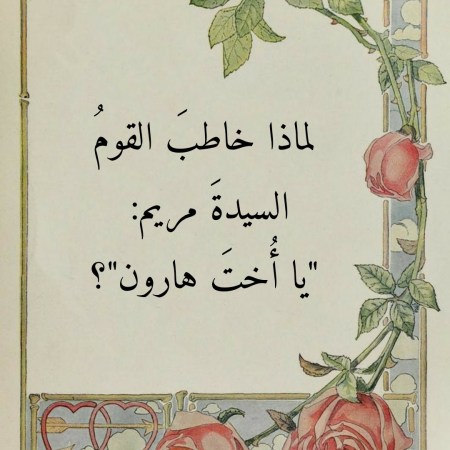 لماذا خاطبَ القومُ
السيدةَ مريم:
"يا أُختَ هارون"؟